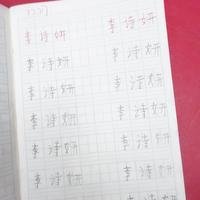 李诗妍 李诗妍
李诗妍 李诗妍
李诗妍 李诗妍
李诗妍 李诗妍
李诗妍 李诗妍
李诗妍 李诗妍
李诗妍 李诗妍